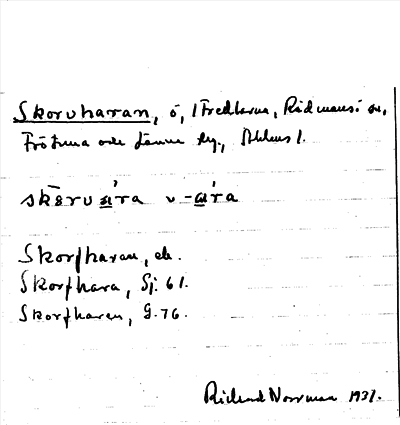 Skoruharan, ö, i Fredlarna, Rådmansö sn,
Frötuna och Länna skg., Sthlms l.
skōru ára v -ára
Skorfharan, ek.
Skorfhara, Sj. 61.
Skorfharan, G. 76.
Rickard Norrman 1937.